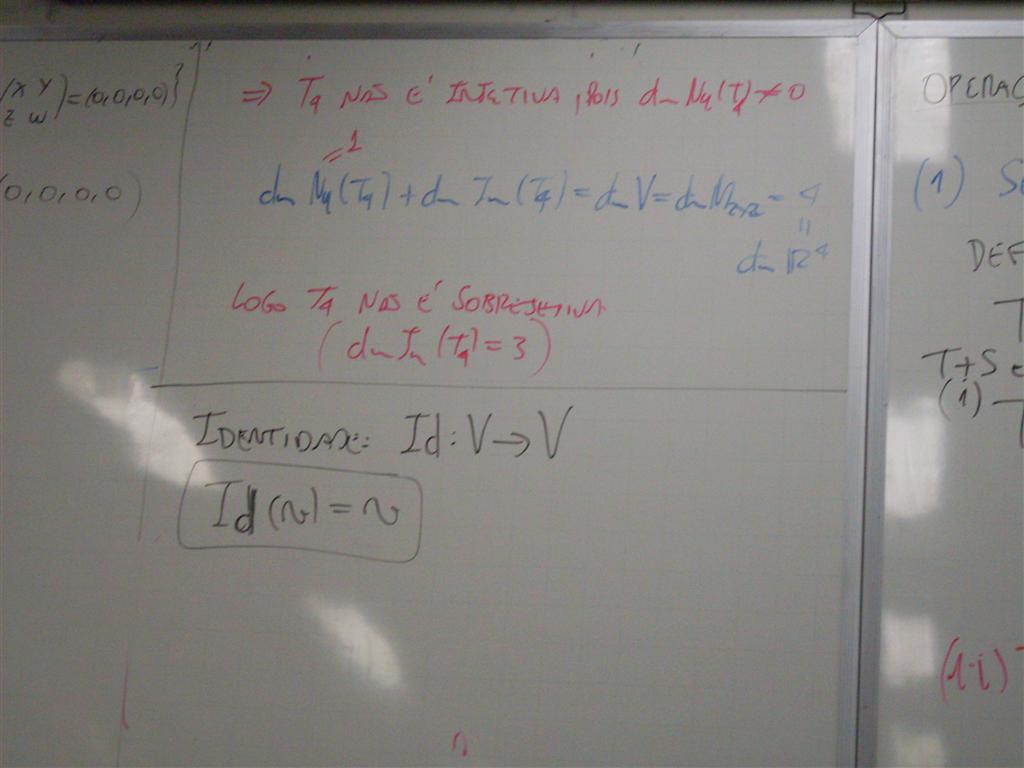 (X Y
Z W) = (0,0,0,0)}
(0,0,0,0)
⇒ T4 NÃO É INJETIVA, POIS dim Nu(T4) ≠ 0
= 1
dim Nu(T4) + dim Im(T4) = dim V = dim M2x2 = 4
=
dim R⁴
LOGO T4 NÃO É SOBREJETIVA
(dim Im(T4) = 3)
IDENTIDADE: Id: V → V
Id(v) = v
OPERAÇ
(1) S
DEF
T
T+S
(1)
(1.i)